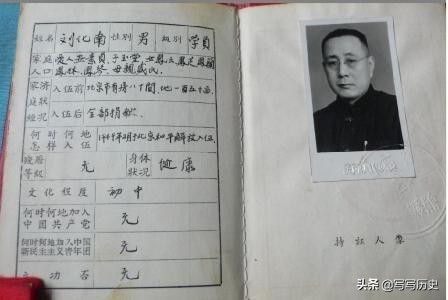 姓名 刘化南 性别 男 级别 学员
家庭人口 爱人 素贞 子玉堂 女
凤林 凤琴 母亲 戚氏
家庭经济状况 入伍前 北京市有房八十间 地一百五十亩
入伍后 全部捐献
何时何地怎样入伍 1949年 月于北京和平解放入伍
残废等级 无 身体状况 健康
文化程度 初中
何时何地加入中国共产党 无
何时何地加入中国新民主主义青年团 无
立功否 无
持证人像
头条 @写写历史